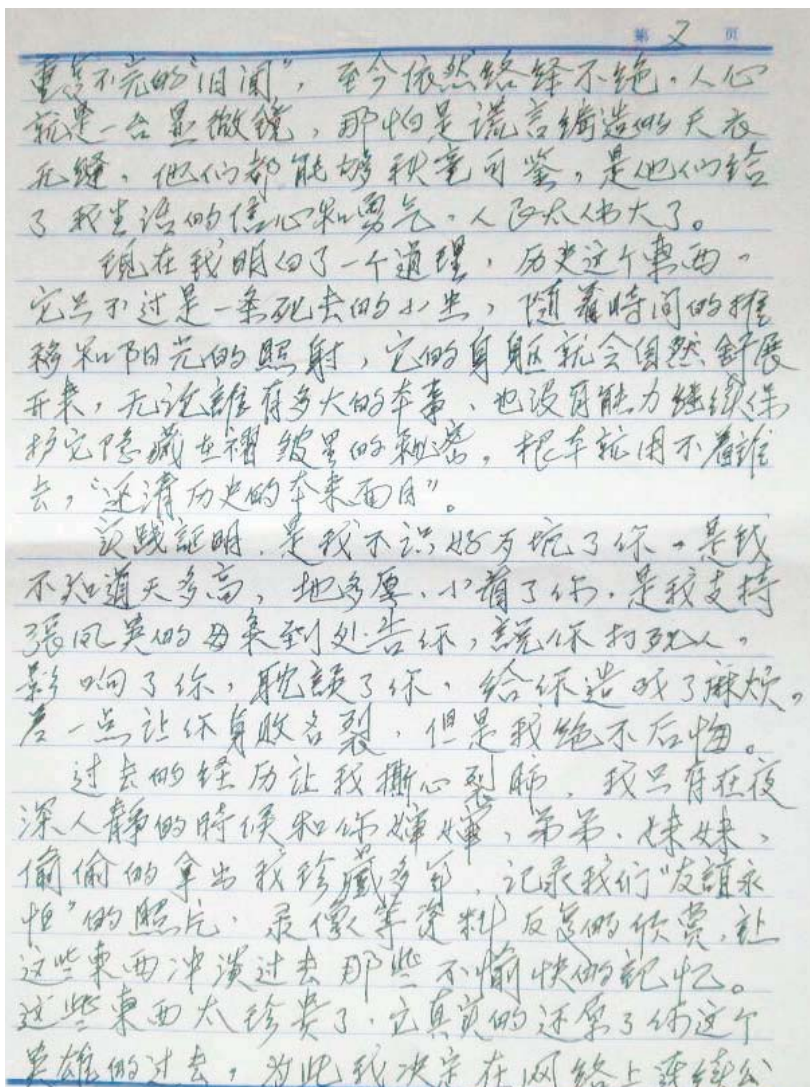 第 2 页
不完的“旧闻”，至今依然络绎不绝。人心
就是一台显微镜，那怕是谎言编造的天衣
无缝，他们都能够秋毫可鉴，是他们给
了我生活的信心和勇气，人民太伟大了。
现在我明白了一个道理，历史这个東西，
它只不过是一条死去的小虫，随着時间的推
移和阳光的照射，它的身躯就会自然舒展
开来，无论誰有多大的本事，也没有能力继续保
护它隐藏在褶皱里的秘密。根本就用不着誰
去，“还清历史的本来面目”。
实践証明，是我不识好歹坑了你，是我
不知道天多高，地多厚，小看了你，是我支持
張凤英的母亲到处告你，説你打死人，
影响了你，耽誤了你，给你造成了麻烦，
差一点让你身败名裂，但是我绝不后悔。
过去的经历让我撕心裂肺，我只有在夜
深人静的時候和你嬸嬸，弟弟，妹妹，
偷偷的拿出我珍藏多年，记录我们“友誼永
恒”的照片，录像等资料反复的欣赏，让
这些東西冲淡过去那些不愉快的記忆。
这些東西太珍贵了，它真实的还原了你这个
英雄的过去，为此我决定在网络上连续公